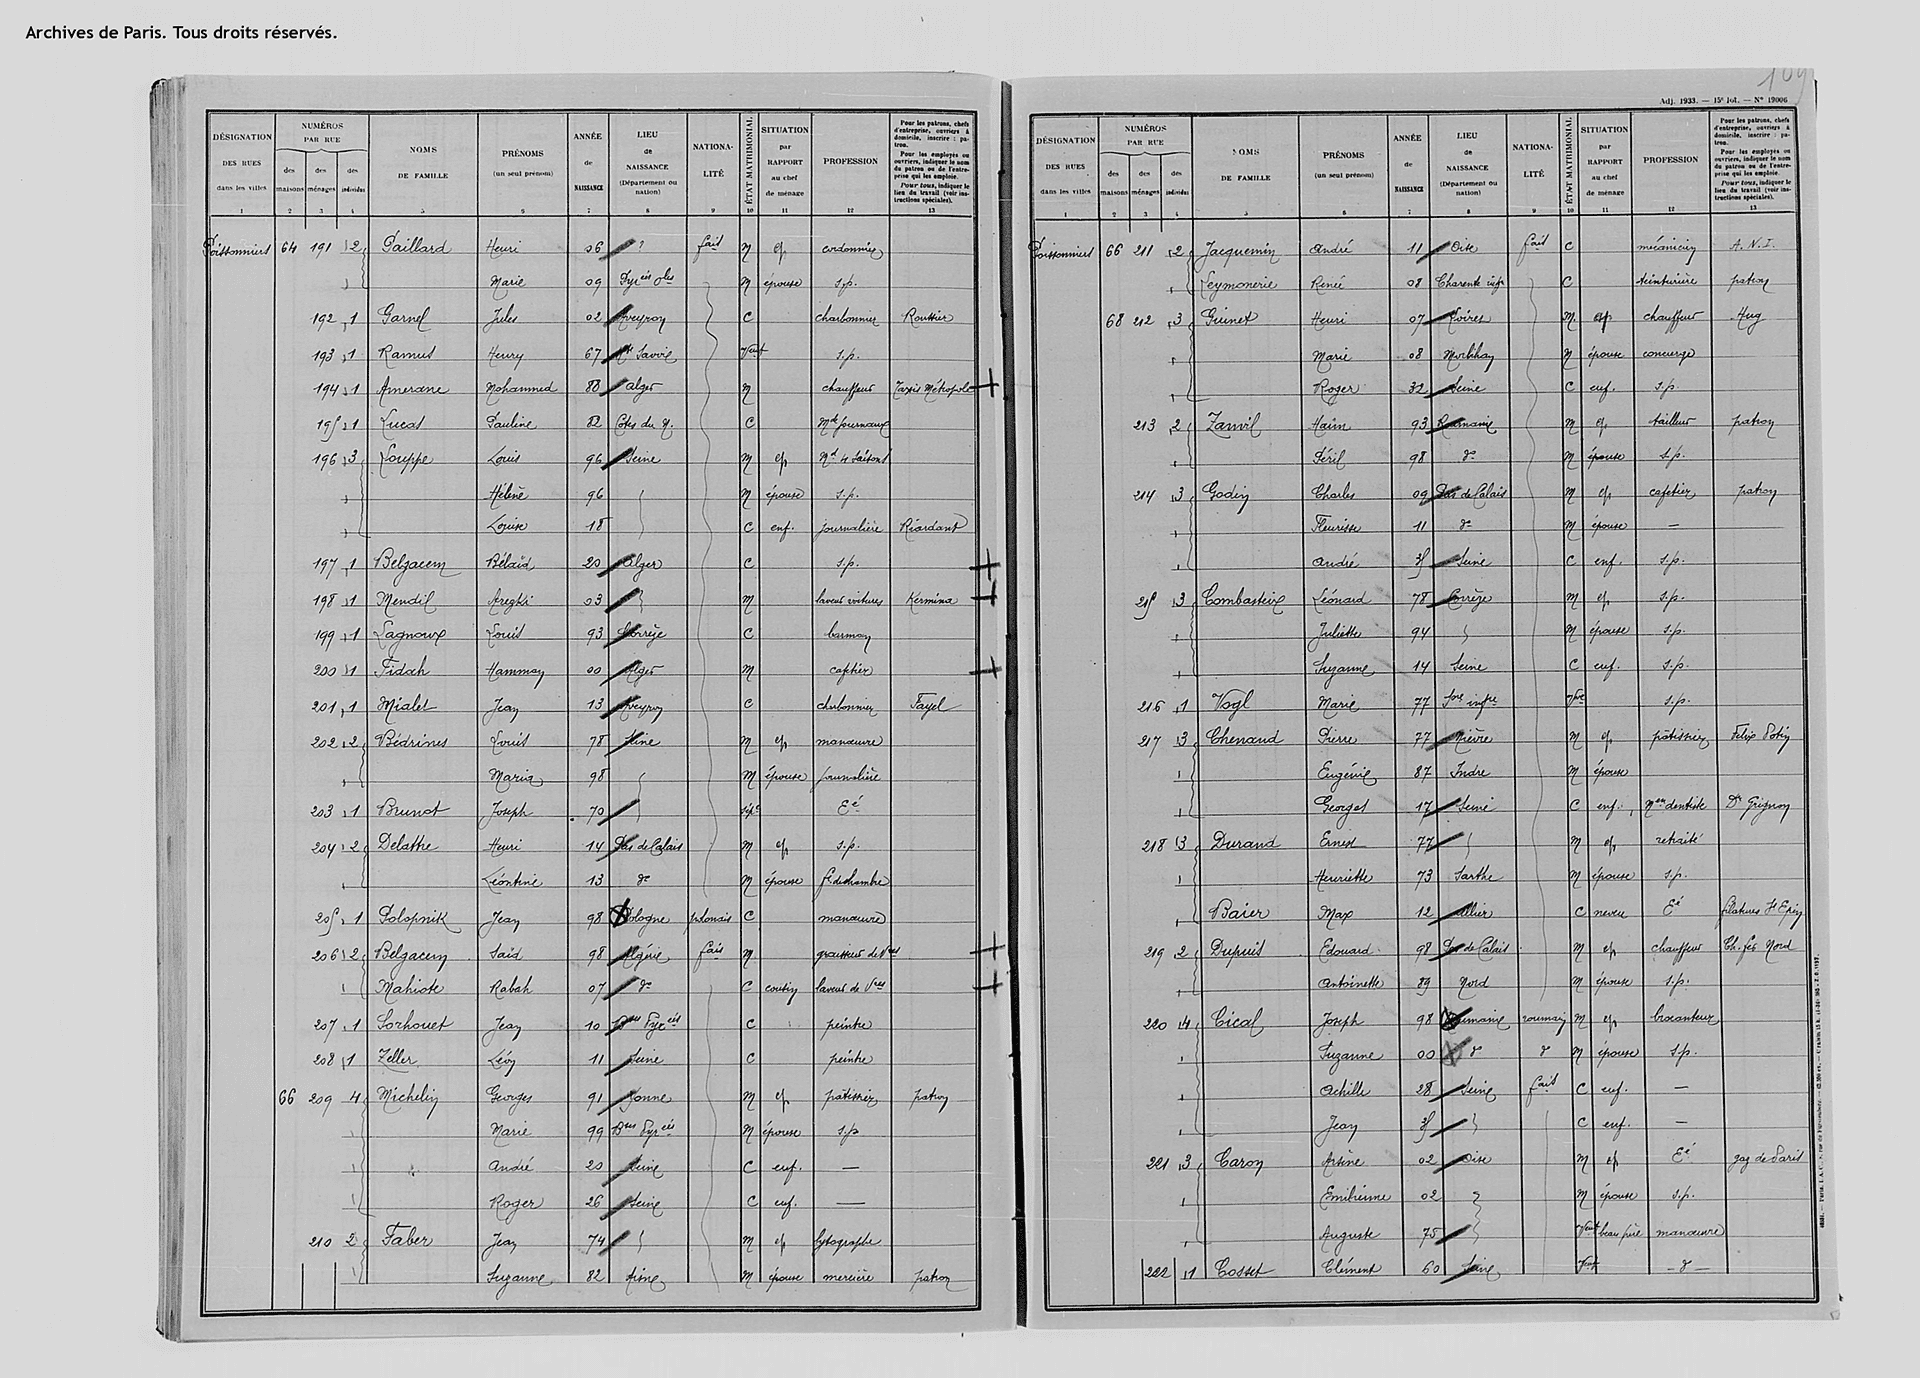 Archives de Paris. Tous droits réservés.
109
Adj. 1933. — 15e lot. — N° 19006
DÉSIGNATION DES RUES dans les villes | NUMÉROS PAR RUE des maisons | des ménages | des individus | NOMS DE FAMILLE | PRÉNOMS (un seul prénom) | ANNÉE de NAISSANCE | LIEU de NAISSANCE (Département ou nation) | NATIONALITÉ | ÉTAT MATRIMONIAL | SITUATION par RAPPORT au chef de ménage | PROFESSION | Pour les patrons, chefs d'entreprise, ouvriers à domicile, inscrire : patron. Pour les employés ou ouvriers, indiquer le nom du patron ou de l'entreprise qui les emploie. Pour tous, indiquer le lieu du travail (voir instructions spéciales).
1 2 3 4 5 6 7 8 9 10 11 12 13
Poissonniers 64 191 2 Paillard Henri 06 " fais M ep cordonnier
Marie 09 Pyrées Oles M épouse s.p.
192 1 Garnel Jules 02 Aveyron C charbonnier Routtier
193 1 Ramus Henry 67 Hte Savoie Veuf s.p.
194 1 Amerane Mohammed 88 Alger M chauffeur Taxis Métropole
195 1 Lucas Pauline 82 Côtes du N. C Mde journaux
196 3 Louppe Louis 96 Seine M ep Md 4 saisons
Hélène 96 M épouse s.p.
Louise 18 C enf. journalière Réardant
197 1 Belgacem Bélaïd 20 Alger C s.p.
198 1 Mendil Areghi 03 M laveur voitures Kermina
199 1 Lagnoux Louis 93 Corrèze C barman
200 1 Fidah Hammay 00 Alger M cafetier
201 1 Mialet Jean 13 Aveyron C charbonnier Fayel
202 2 Bédrines Louis 78 Seine M ep manœuvre
Maria 98 M épouse journalière
203 1 Brunot Joseph 70 sép. Eé
204 2 Delattre Henri 14 Pas de Calais M ep s.p.
Léontine 13 do M épouse fe de chambre
205 1 Polopnik Jean 98 Pologne polonais C manœuvre
206 2 Belgacem Saïd 98 Algérie fais M graisseur de Vres
Mahiote Rabah 07 do C cousin laveur de Vres
207 1 Sorhouet Jean 10 Bses Pyrées C peintre
208 1 Zeller Léon 11 Seine C peintre
66 209 4 Michelin Georges 91 Yonne M ep pâtissier patron
Marie 99 Bses Pyrées M épouse s.p
André 20 Seine C enf. —
Roger 26 Seine C enf. —
210 2 Faber Jean 74 M ep lytographe
Suzanne 82 Aisne M épouse mercière patron
DÉSIGNATION DES RUES dans les villes | NUMÉROS PAR RUE des maisons | des ménages | des individus | NOMS DE FAMILLE | PRÉNOMS (un seul prénom) | ANNÉE de NAISSANCE | LIEU de NAISSANCE (Département ou nation) | NATIONALITÉ | ÉTAT MATRIMONIAL | SITUATION par RAPPORT au chef de ménage | PROFESSION | Pour les patrons, chefs d'entreprise, ouvriers à domicile, inscrire : patron. Pour les employés ou ouvriers, indiquer le nom du patron ou de l'entreprise qui les emploie. Pour tous, indiquer le lieu du travail (voir instructions spéciales).
1 2 3 4 5 6 7 8 9 10 11 12 13
Poissonniers 66 211 2 Jacquemin André 11 Oise fais C mécanicien A. N. I.
Leymonerie Renée 08 Charente infre C teinturière patron
68 212 3 Guinet Henri 07 Loiret M ep chauffeur Hug
Marie 08 Morbihan M épouse concierge
Roger 32 Seine C enf. s.p
213 2 Zanvil Haïm 93 Roumanie M ep tailleur patron
Péril 98 do M épouse s.p.
214 3 Godin Charles 09 Pas de Calais M ep cafetier patron
Fleurisse 11 do M épouse —
André 35 Seine C enf. s.p.
215 3 Combasteix Léonard 78 Corrèze M ep s.p.
Juliette 94 M épouse s.p.
Suzanne 14 Seine C enf. s.p.
216 1 Vogl Marie 77 Sne infre Vve s.p.
217 3 Chenaud Pierre 77 Nièvre M ep pâtissier Felix Potin
Eugénie 87 Indre M épouse
Georges 17 Seine C enf. Men dentiste Dr Grignon
218 3 Durand Ernest 77 M ep retraité
Henriette 73 Sarthe M épouse s.p.
Baier Max 12 Allier C neveu Eé filatures St Epin
219 2 Dupuis Edouard 98 Pas de Calais M ep chauffeur Ch. fer Nord
Antoinette 89 Nord M épouse s.p.
220 4 Cical Joseph 98 Roumanie roumain M ep brocanteur
Suzanne 00 do do M épouse s.p.
Achille 28 Seine fais C enf. —
Jean 35 C enf. —
221 3 Caron Arsène 02 Oise M ep Eé gaz de Paris
Emilienne 02 M épouse s.p.
Auguste 75 Veuf beau père manœuvre
222 1 Cosset Clément 60 Seine Veuf do